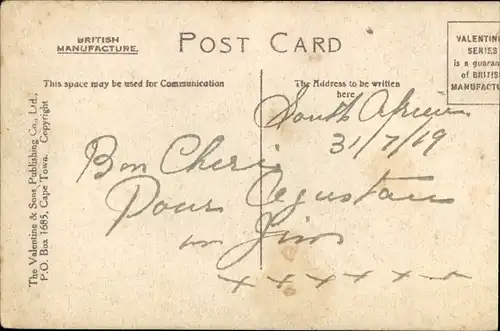 BRITISH
MANUFACTURE.
POST CARD
VALENTINE
SERIES
is a guaran
of BRITIS
MANUFACTU
This space may be used for Communication
The Address to be written
here
The Valentine & Sons Publishing Co., Ltd.,
P.O. Box 1685, Cape Town. Copyright
South Africa
31/7/19
Bon Cheri
Pour
Jim
x x x x x x